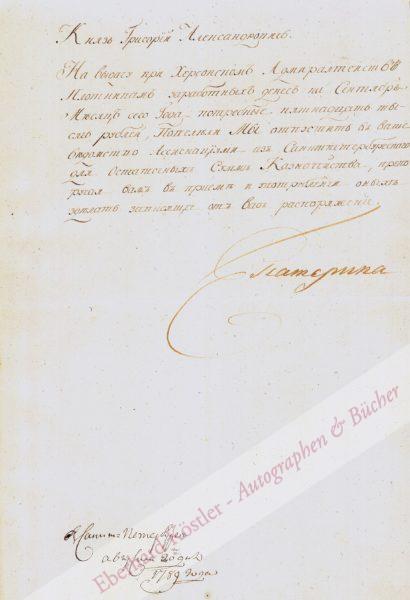 Князь Григорій Александровичь.
На выдачу при Херсонскомъ Адмиралтействѣ
Плотникамъ заработныхъ денегъ на Сентябрь
Мѣсяцъ сего года потребные пятнадцать ты-
сячь рублей, Повелѣли Мы отпустить въ ваше
вѣдомство Ассигнаціями изъ Санктпетербургскаго
для остаточныхъ суммъ Казначейства, препо-
ручая вамъ въ пріемѣ и употребленіи оныхъ
здѣлать зависящее отъ васъ распоряженіе.
Екатерина
Санктъ Петербургъ
августа
1789 года
Eberhard Köstler - Autographen & Bücher